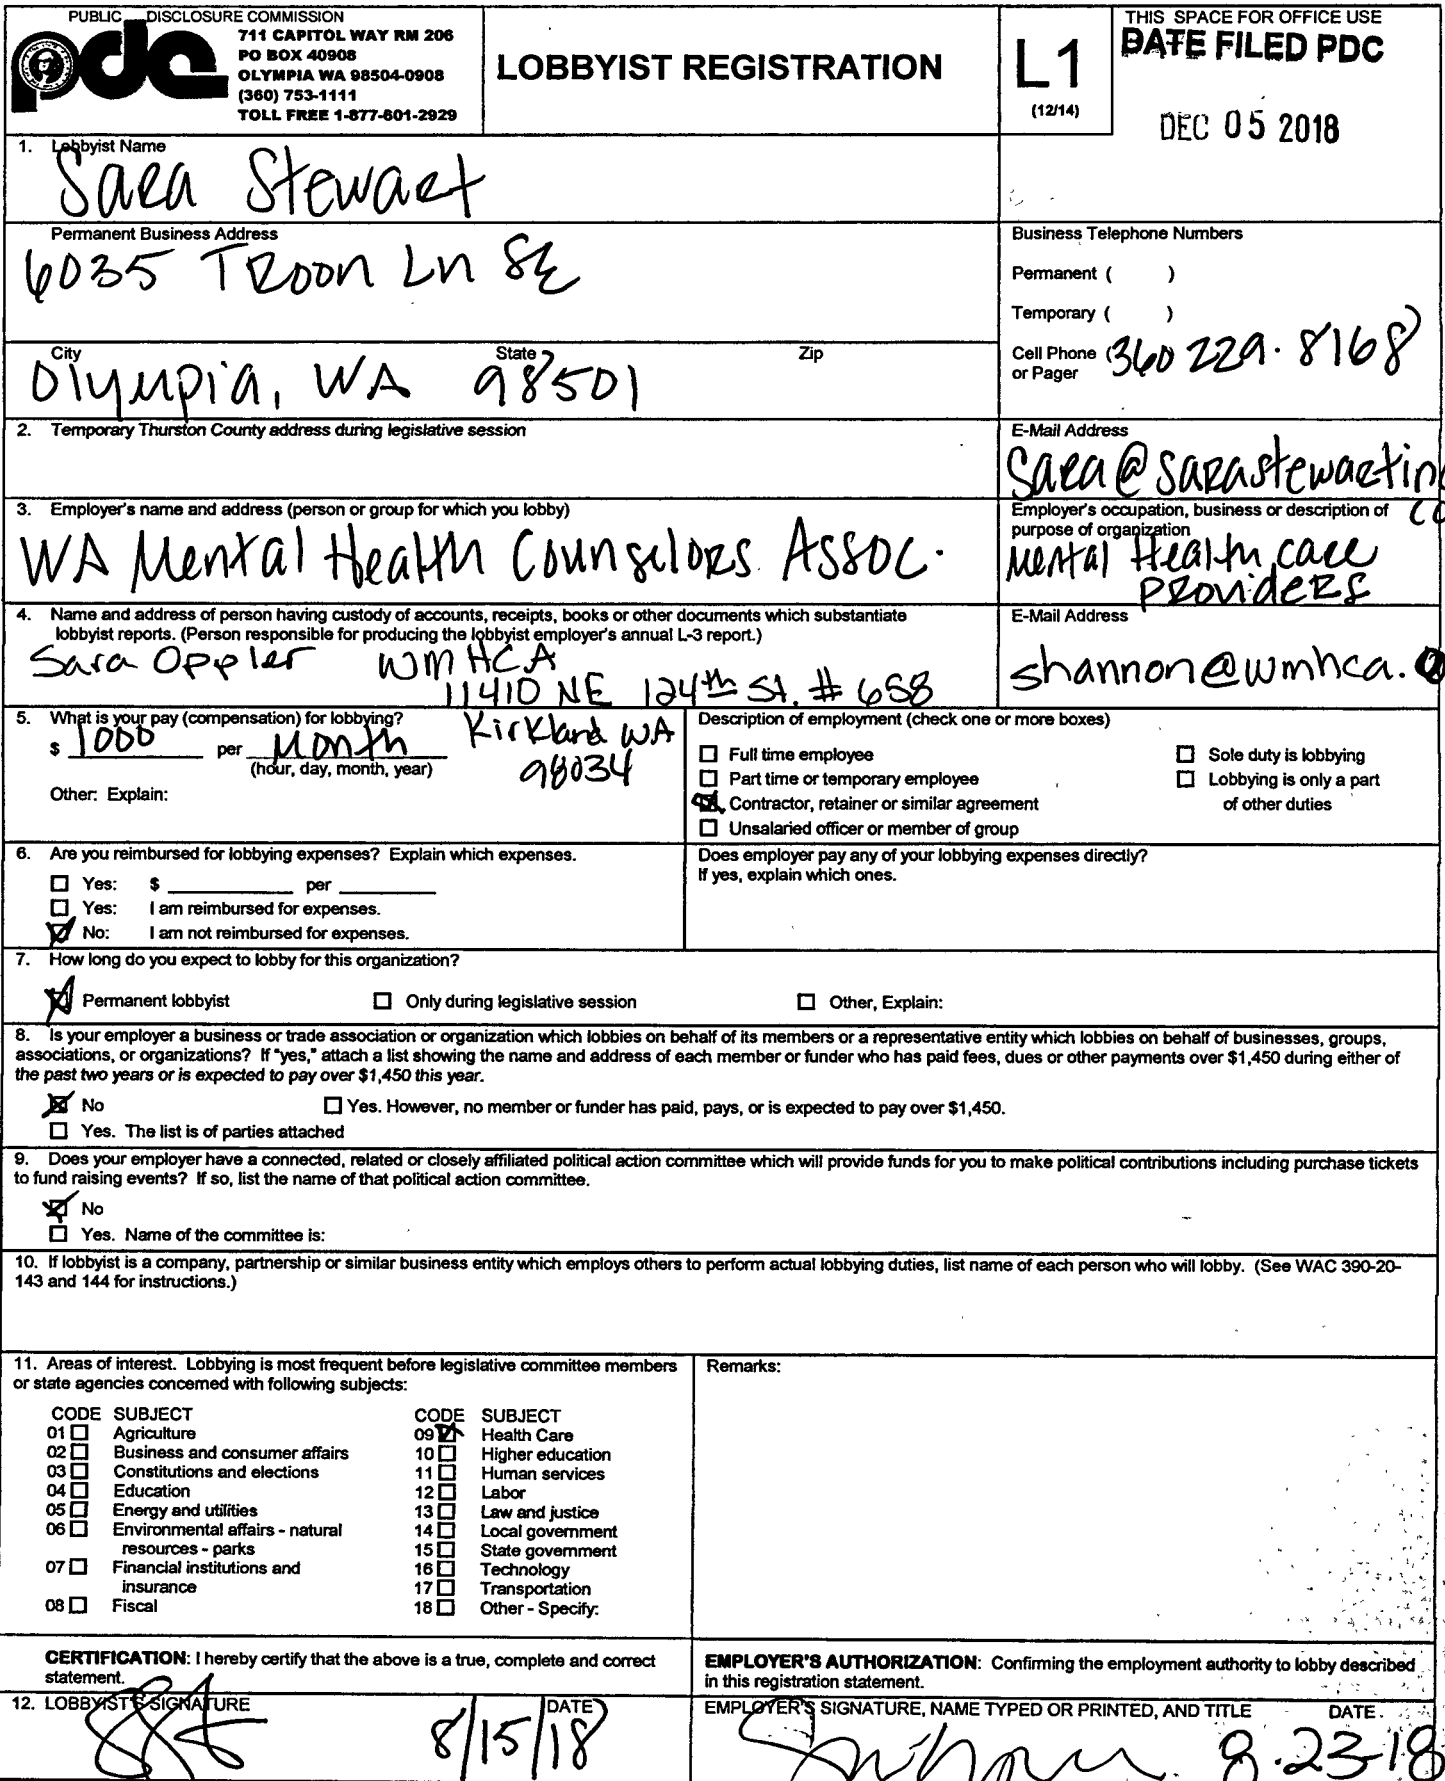 PUBLIC DISCLOSURE COMMISSION
pdc
711 CAPITOL WAY RM 206
PO BOX 40908
OLYMPIA WA 98504-0908
(360) 753-1111
TOLL FREE 1-877-601-2929
LOBBYIST REGISTRATION
L1
(12/14)
THIS SPACE FOR OFFICE USE
DATE FILED PDC
DEC 05 2018
1. Lobbyist Name
Sara Stewart
Permanent Business Address
6035 Troon Ln SE
Business Telephone Numbers
Permanent ( )
Temporary ( )
City State Zip
Olympia, WA 98501
Cell Phone (360 229.8168)
or Pager
2. Temporary Thurston County address during legislative session
E-Mail Address
Sara@sarastewartin
3. Employer's name and address (person or group for which you lobby)
WA Mental Health Counselors Assoc.
Employer's occupation, business or description of
purpose of organization
Mental Health care
providers
4. Name and address of person having custody of accounts, receipts, books or other documents which substantiate
lobbyist reports. (Person responsible for producing the lobbyist employer's annual L-3 report.)
Sara Oppler WMHCA
11410 NE 124th St. # 658
Kirkland WA
98034
E-Mail Address
shannon@wmhca.
5. What is your pay (compensation) for lobbying?
$ 1000 per Month
(hour, day, month, year)
Other: Explain:
Description of employment (check one or more boxes)
Full time employee
Part time or temporary employee
Contractor, retainer or similar agreement
Unsalaried officer or member of group
Sole duty is lobbying
Lobbying is only a part
of other duties
6. Are you reimbursed for lobbying expenses? Explain which expenses.
Yes: $ per
Yes: I am reimbursed for expenses.
No: I am not reimbursed for expenses.
Does employer pay any of your lobbying expenses directly?
If yes, explain which ones.
7. How long do you expect to lobby for this organization?
Permanent lobbyist Only during legislative session Other, Explain:
8. Is your employer a business or trade association or organization which lobbies on behalf of its members or a representative entity which lobbies on behalf of businesses, groups,
associations, or organizations? If "yes," attach a list showing the name and address of each member or funder who has paid fees, dues or other payments over $1,450 during either of
the past two years or is expected to pay over $1,450 this year.
No Yes. However, no member or funder has paid, pays, or is expected to pay over $1,450.
Yes. The list is of parties attached
9. Does your employer have a connected, related or closely affiliated political action committee which will provide funds for you to make political contributions including purchase tickets
to fund raising events? If so, list the name of that political action committee.
No
Yes. Name of the committee is:
10. If lobbyist is a company, partnership or similar business entity which employs others to perform actual lobbying duties, list name of each person who will lobby. (See WAC 390-20-
143 and 144 for instructions.)
11. Areas of interest. Lobbying is most frequent before legislative committee members
or state agencies concerned with following subjects:
CODE SUBJECT
01 Agriculture
02 Business and consumer affairs
03 Constitutions and elections
04 Education
05 Energy and utilities
06 Environmental affairs - natural
resources - parks
07 Financial institutions and
insurance
08 Fiscal
CODE SUBJECT
09 Health Care
10 Higher education
11 Human services
12 Labor
13 Law and justice
14 Local government
15 State government
16 Technology
17 Transportation
18 Other - Specify:
Remarks:
CERTIFICATION: I hereby certify that the above is a true, complete and correct
statement.
12. LOBBYIST'S SIGNATURE DATE
8/15/18
EMPLOYER'S AUTHORIZATION: Confirming the employment authority to lobby described
in this registration statement.
EMPLOYER'S SIGNATURE, NAME TYPED OR PRINTED, AND TITLE DATE
8.23-18